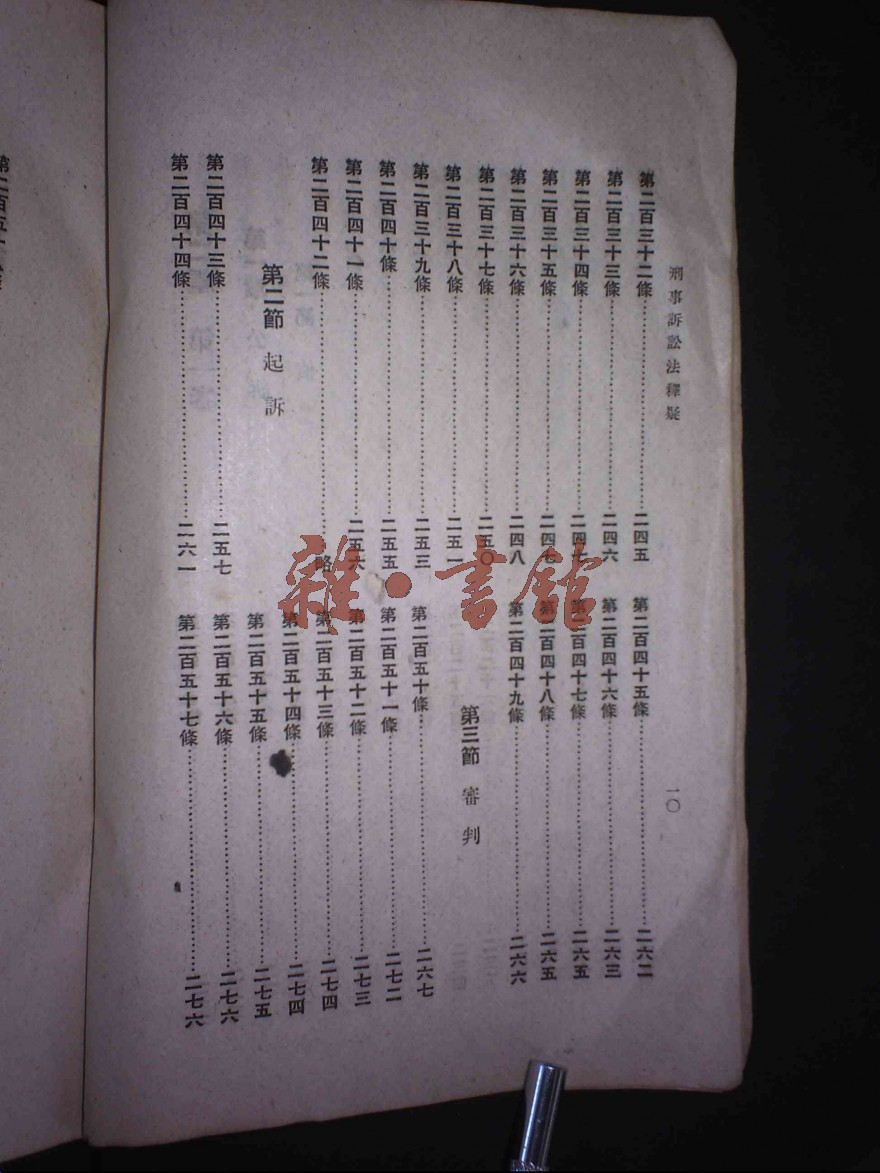 刑事訴訟法釋疑
一〇
第二百三十二條……二四五
第二百三十三條……二四六
第二百三十四條……二四七
第二百三十五條……二四七
第二百三十六條……二四八
第二百三十七條……二五〇
第二百三十八條……二五一
第二百三十九條……二五三
第二百四十條……二五五
第二百四十一條……二五六
第二百四十二條……略
第二節 起訴
第二百四十三條……二五七
第二百四十四條……二六一
第二百四十五條……二六二
第二百四十六條……二六三
第二百四十七條……二六五
第二百四十八條……二六五
第二百四十九條……二六六
第三節 審判
第二百五十條……二六七
第二百五十一條……二七二
第二百五十二條……二七三
第二百五十三條……二七四
第二百五十四條……二七四
第二百五十五條……二七五
第二百五十六條……二七六
第二百五十七條……二七六
雜·書館